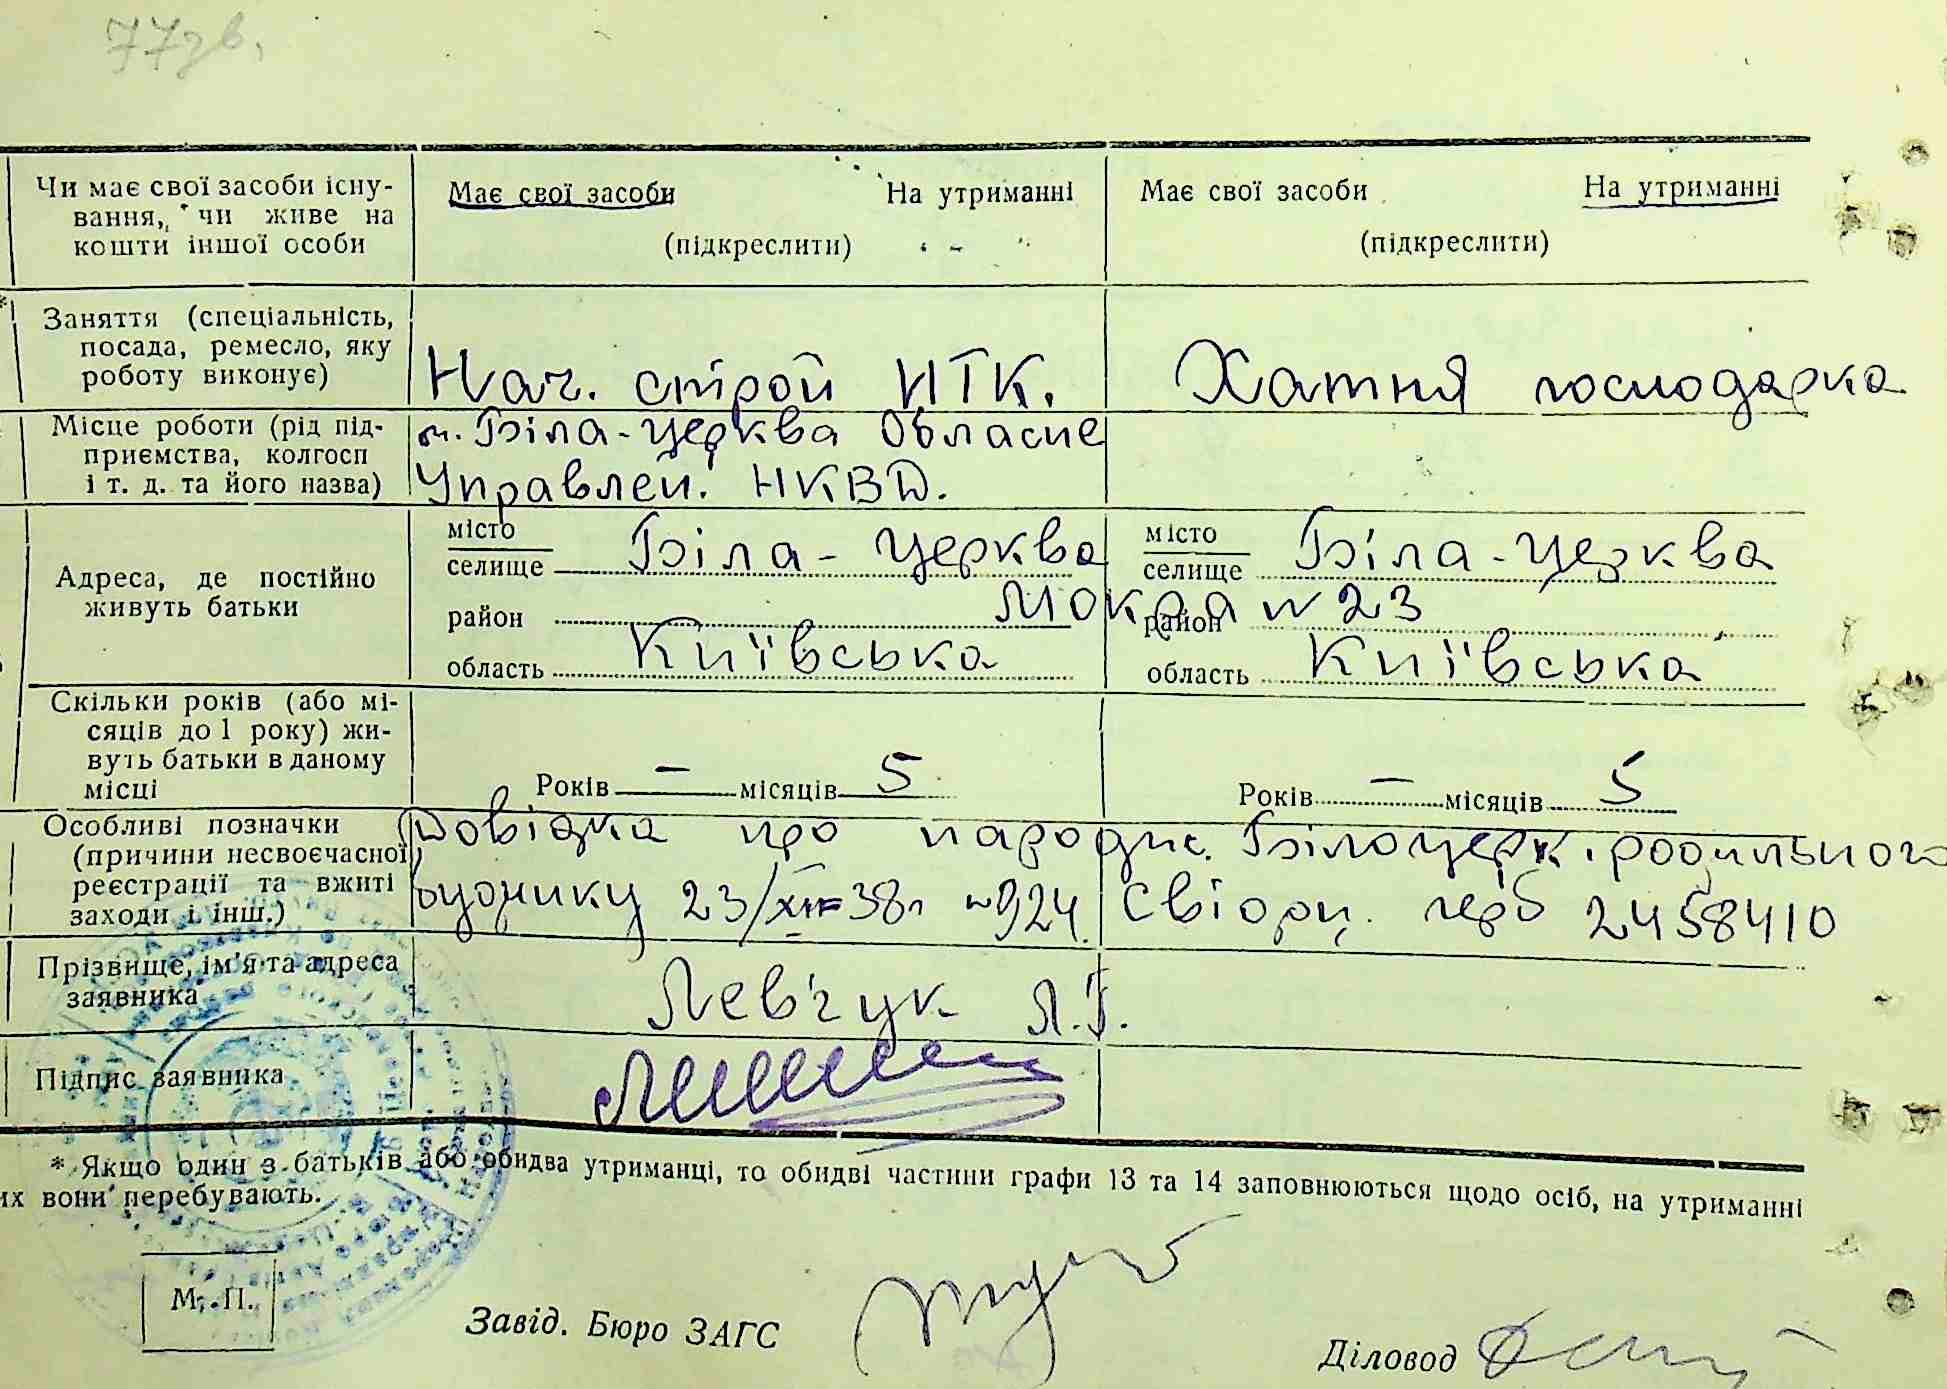 77зв.
Чи має свої засоби існу- Має свої засоби На утриманні Має свої засоби На утриманні
вання, чи живе на
кошти іншої особи (підкреслити) (підкреслити)
Заняття (спеціальність,
посада, ремесло, яку
роботу виконує) Нач. строй ИТК. Хатня господарка
Місце роботи (рід під- м. Біла-Церква Обласне
приємства, колгосп
і т. д. та його назва) Управлен. НКВД.
місто Біла-Церква місто Біла-Церква
селище селище
Адреса, де постійно
живуть батьки
район Мокра № 23 район
область Київська область Київська
Скільки років (або мі-
сяців до 1 року) жи-
вуть батьки в даному
місці Років — місяців 5 Років — місяців 5
Особливі позначки Довідка про народж. Білоцерк. родильного
(причини несвоєчасної
реєстрації та вжиті будинку 23/XII-38г №924. герб 2458410
заходи і інш.)
Прізвище, ім'я та адреса
заявника Левчук Л.Г.
Підпис заявника
* Якщо один з батьків або обидва утриманці, то обидві частини графи 13 та 14 заповнюються щодо осіб, на утриманні
их вони перебувають.
М. П.
Завід. Бюро ЗАГС
Діловод